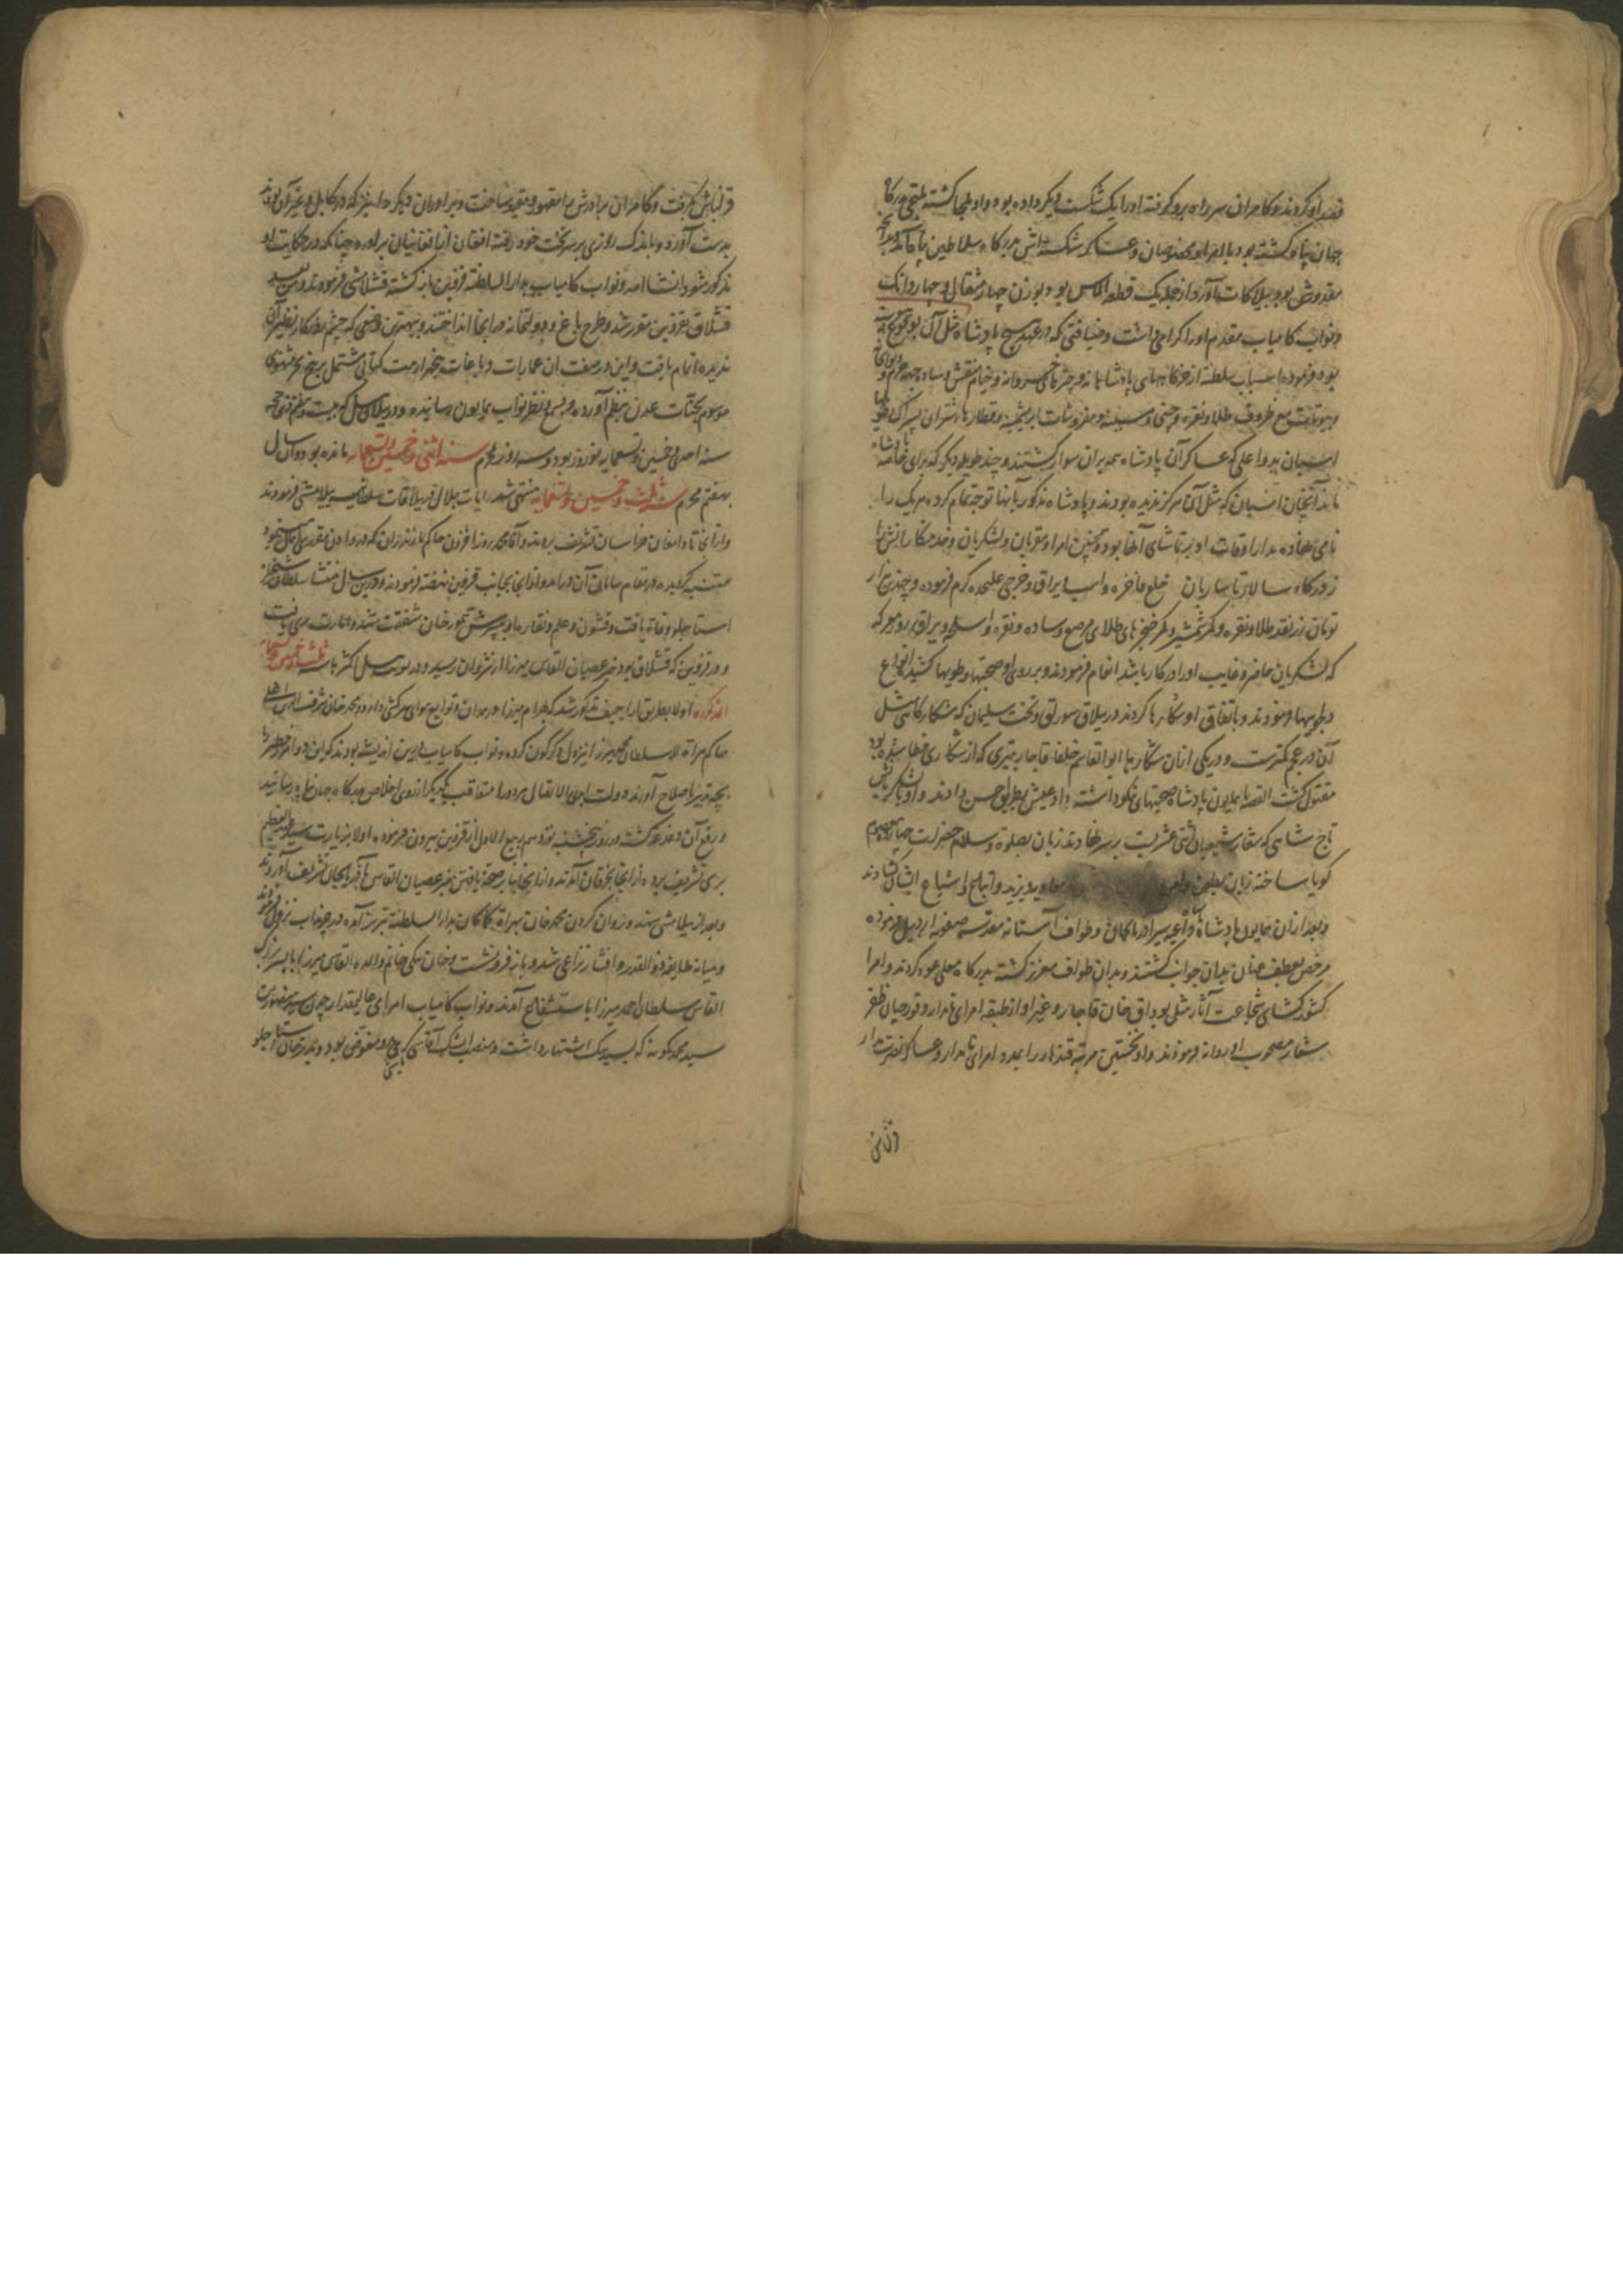 قصد او کردند و کامران سر راه برو گرفته او را یک شکست دیگر داده بود و او ملجا گشته ملتجی بدرگاه
جهان پناه گشته بود با امرا و مخصوصان و عساکر شکسته اش بدرگاه سلاطین پناه آمد و بدانچه
مقدورش بود بیلاکات آورد از جمله یک قطعه الماس بود بوزن چهار مثقال و چهار دانک
و نواب کامیاب مقدم او را گرامی داشت و ضیافتی که در عهد هیچ پادشاه مثل آن بوقوع
بود فرموده اسباب سلطنة از خرگاههای پادشاهانه و چترهای خسروانه و خیام منقش و ساده جهه حرم و دیوان
و بیوتات مع ظروف طلا و نقره و چینی و مسینه و مفروشات ابریشمینه و قطارها شتران
اسبان بدو اعلی که عساکر آن پادشاه همه بران سوار گشتند و چند طویله دیگر که برای خاصه پادشاه
آنچنان اسبان که مثل آن هرگز ندیده بودند و پادشاه مذکور بآنها توجه تمام کرده هر یک را
نامی نهاده مدار اوقات او بتماشای آنها بود و همچنین امرا و مقربان و لشکریان و خدمتکارانش را
زدرگاه سالار تا ساربان خلع فاخره و اسب و یراق و خرجی علیحده کرم فرموده و چندین هزار
تومان زر نقد طلا و نقره و کمر شمشیر و کمر خنجرهای طلای مرصع و ساده و نقره و اسلحه و یراق روز معرکه
که لشکریان حاضر و غایب او را در کار باشد انعام فرمودند و بر روی او صحبتها و طویها کشیده انواع
دلجوییها نمودند و باتفاق او شکارها کردند در ییلاق سورلق و تخت سلیمان که شکارگاهی مثل
آن در عجم کمترست و در یکی ازان شکارها ابوالقاسم خلفا قاجار بتیری که از شکاری خطا شده بود
مقتول گشت القصه با همایون پادشاه صحبتهای نکو داشته داد عیش بطریق حسن دادند و او با لشکریانش
تاج شاهی که شعار شیعیان اثنی عشریست بر سر نهادند زبان بصلوة و سلام حضرات چهارده معصوم
گویا ساخته زبان بطعن و لعن معاویه و یزید و اتباع و اشیاع ایشان گشادند
و بعد ازان همایون پادشاه داعیه سیر آذربایجان و طواف آستانه مقدسه صفویه اردبیل فرموده
مرخص بعطف عنان بدان جوانب گشتند و بدان طواف معزز گشته بدرگاه معلی عود کردند و امرا
کشورگشای شجاعت آثار مثل بوداق خان قاجار و غیر او از طبقه امرای نامدار و قورچیان ظفر
شعار مصحوب او روانه فرمودند و او نخستین مرتبه قندهار را بمدد امرای نامدار و عساکر نصرت مدار
قزلباش گرفت و کامران برادرش را مقهور و مقید ساخت و برادران دیگر را نیز که در کابل و غیر آن بودند
بدست آورد و باندک روزی بر سر تخت خود رفته افغان از افغانیان برآورد چنانکه در حکایت او
مذکور شود انشا الله و نواب کامیاب بدار السلطنة قزوین باز گشته قشلامشی فرمودند
قشلاق بقزوین مقرر شد و طرح باغ و دولتخانه در آنجا انداختند و بهترین وضعی که چشم روزگار نظیر آن
ندیده اتمام یافت و این در صفت آن عمارات و باغات کتابی مشتمل بر پنج بحر مثنوی
موسوم بجنات عدن بنظم آورده و بسمع و نظر نواب همایون رسانیده و در ییلامشی
سنه احدی و خمسین و تسعمایه نوروز بود و سه روز محرم سنه اثنی و خمسین و تسعمایه مانده بود و آن سال
بهفتم محرم سنه ثلث و خمسین و تسعمایه منتهی شد رایات جلال در ییلاقات سلطانیه ییلامشی فرمودند
و ازانجا تا دامغان خراسان تشریف بردند و آقا محمد روز افزون حاکم مازندران که در ادای مقدری اهمال نموده
متنبه گردیده در مقام آن درآمد و ازانجا بجانب قزوین نهضة فرمودند و درین سال منتشا سلطان
استاجلو وفات یافت و قشون و علم و نقاره او بپسرش خان شفقت شد و امارت ری یافت
و در قزوین که قشلاق بود خبر عصیان القاس میرزا از شروان رسید و در سنه ثلث و خمسین و تسعمایه
المذکوره اولا بطریق اراجیف مذکور شد که بهرام میرزا در همدان و توابع هوای سرکشی دارد و محمد خان شرف الدین اغلی
حاکم هراة سلطان محمد میرزا را نیز دل دگرگون کرده و نواب کامیاب درین اندیشه بودند که این دو امر خطیر را
بچه تدبیر باصلاح آورند متعاقب یکدیگر از روی اخلاص بدرگاه جهان پناه رسانیدند
و رفع آن دغدغه گشته در روز پنجشنبه نوزدهم ربیع الاول از قزوین بیرون فرموده اولا بزیارت سید عبد العظیم
بری تشریف برده ازانجا بخرقان آمدند و ازانجا بنا بر صحة یافتن خبر عصیان القاس بآذربایجان تشریف آوردند
و بعد از ییلامشی سهند و روان کردن محمد خان بهراة کامکار بدار السلطنة تبریز آمده در چرنداب نزول فرمودند
و میانه طایفه ذو القدر و افشار نزاعی شد و باز فرو نشست و خان بیگی خانم والده القاس میرزا با پسر بزرگ
القاس سلطان احمد میرزا باستشفاع آمدند و نواب کامیاب امرای عالیمقدار چون
سید محمد کمونه که بسید بیک اشتهار داشت و منصب ایشک آقاسی باشی بدو مفوض بود و بدر خان استاجلو